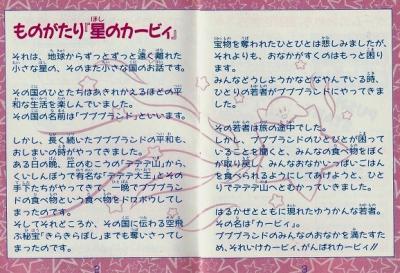 ものがたり『星のカービィ』
それは、地球からずっとずっと遠く離れた
小さな星の、そのまた小さな国のお話です。
その国のひとたちはあきれかえるほどの平
和な生活を楽しんでいました。
その国の名前は「ププブランド」といいます。
しかし、長く続いたププブランドの平和も
おしまいの時がやってきました。
ある日の晩、丘のむこうの「デデデ山」から、
くいしんぼうで有名な「デデデ大王」とその
手下たちがやってきて、一晩でププブランド
の食べ物という食べ物をドロボウしてし
まったのです。
そしてそれどころか、その国に伝わる空飛
ぶ秘宝「きらきらぼし」までも奪いさってし
まったのです。
2
宝物を奪われたひとびとは悲しみましたが、
それよりも、おなかがすくのはもっと困り
ます。
みんなどうしようかなとなやんでいる時、
ひとりの若者がププブランドにやってきま
した。
その若者は旅の途中でした。
しかし、ププブランドのひとびとが困って
いることを聞くと、みんなの食べ物をぼく
が取り戻し、みんなおなかいっぱいごはん
を食べられるようにしてあげようと、ひと
りでデデデ山へとむかっていきました。
はるかぜとともに現れたゆうかんな若者。
その名は「カービィ」。
ププブランドのみんなのおなかを満たすた
め、それいけカービィ、がんばれカービィ!!
3